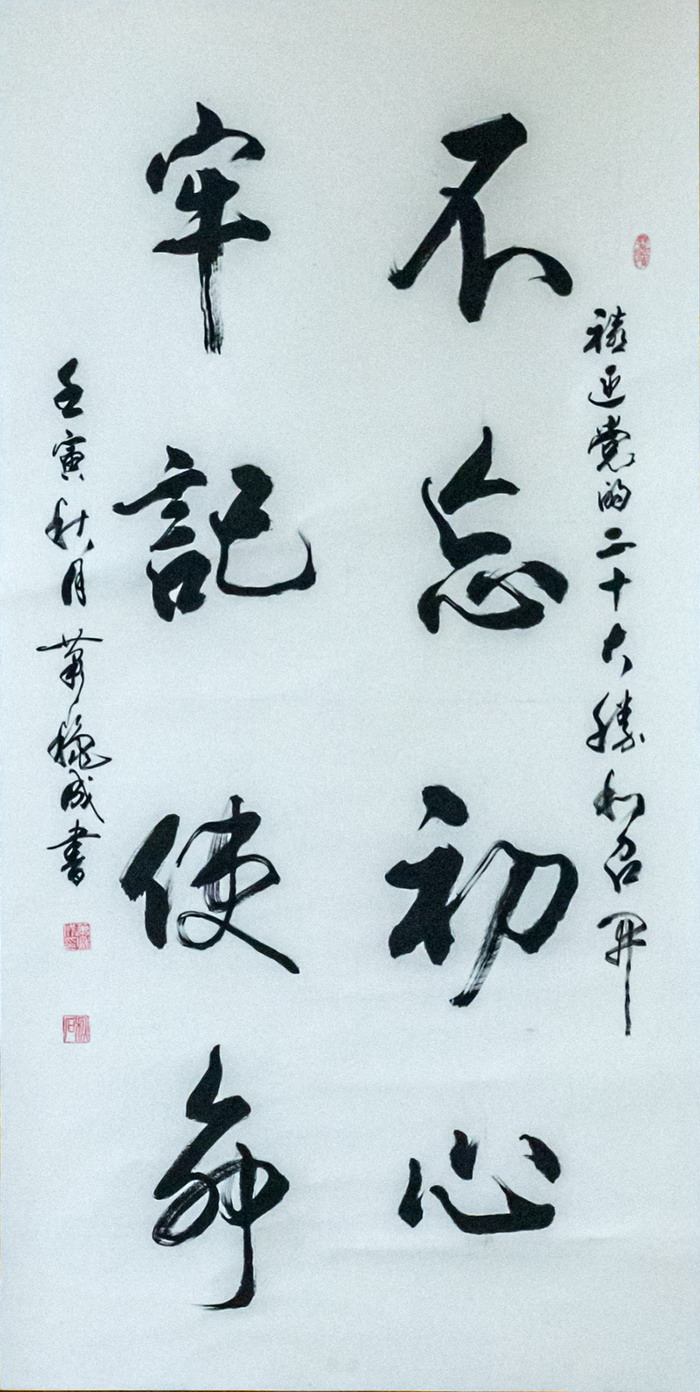 禧迎党的二十大勝利召开
不忘初心
牢記使命
壬寅秋月萧穐成書